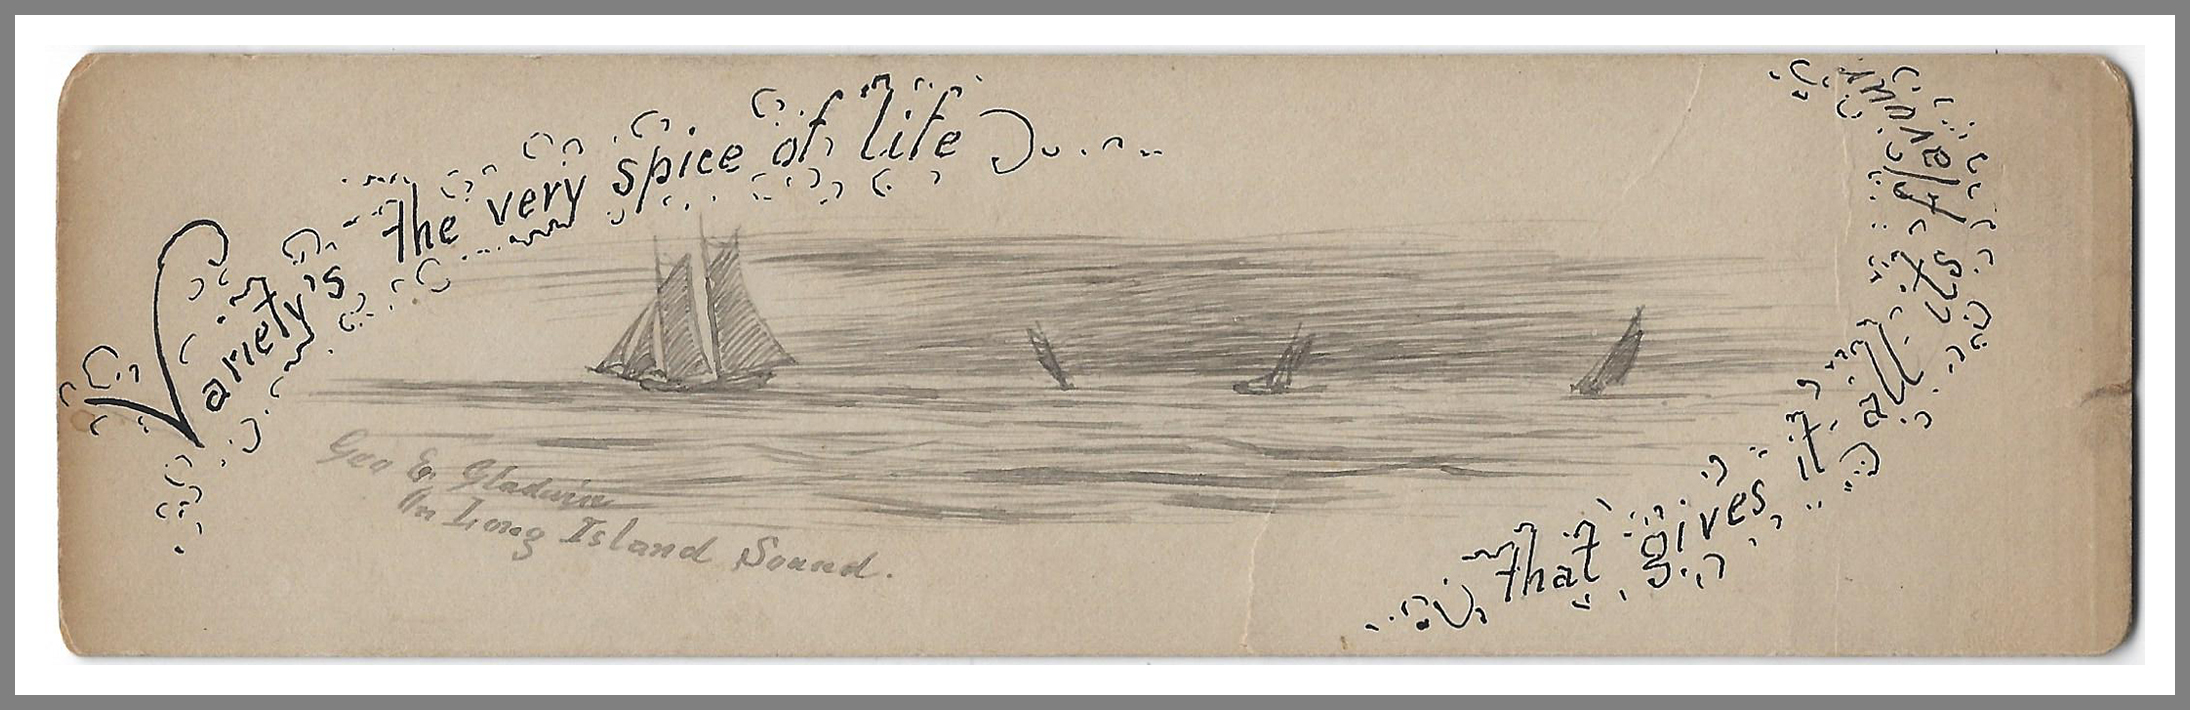 Variety's the very spice of life
that gives it all its flavour
Geo E. Gladwin
On Long Island Sound.